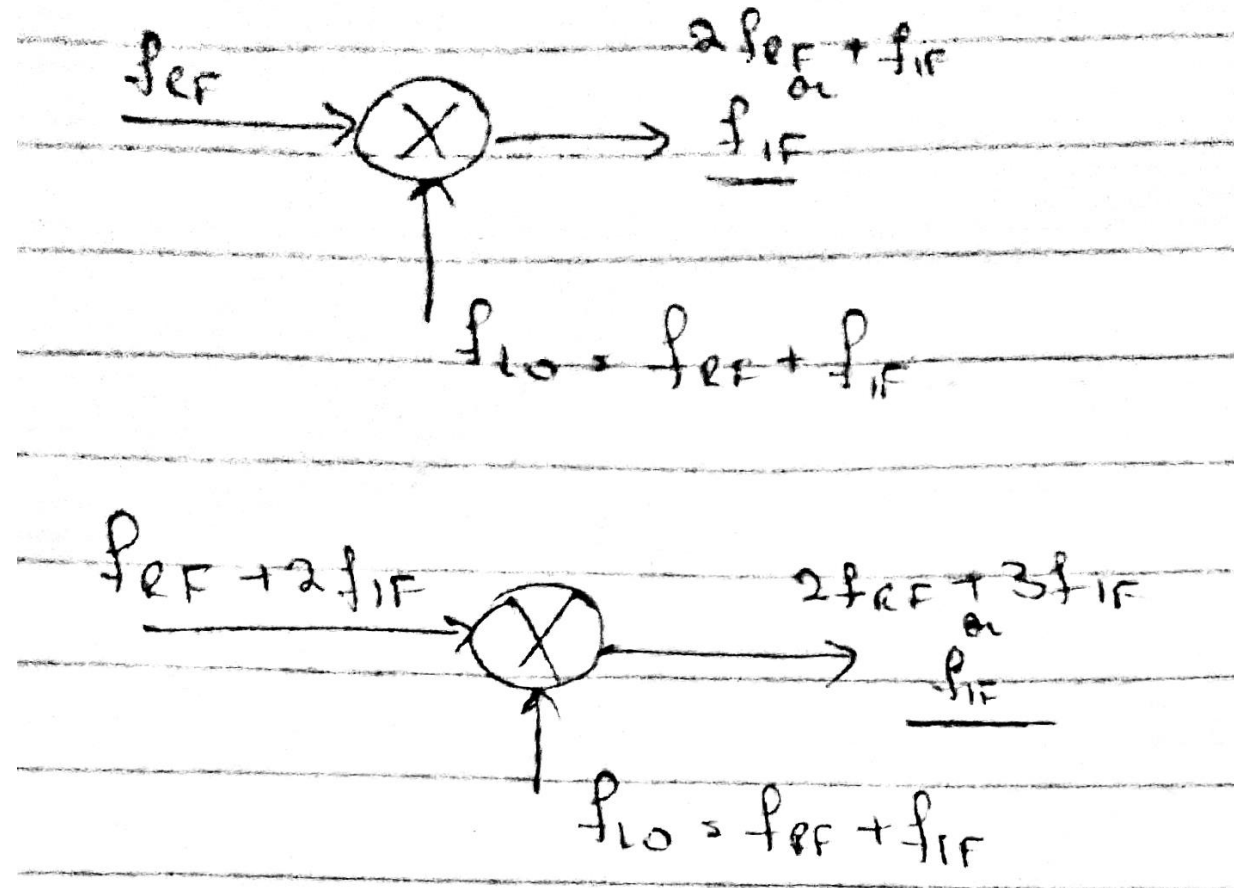 2f_RF + f_IF
f_RF
or
X
f_IF
f_LO = f_RF + f_IF
f_RF + 2f_IF
2f_RF + 3f_IF
or
X
f_IF
f_LO = f_RF + f_IF